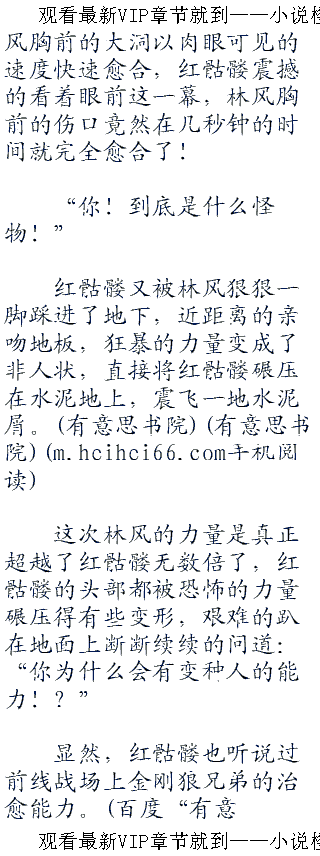 观看最新VIP章节就到——小说检
风胸前的大洞以肉眼可见的
速度快速愈合，红骷髅震撼
的看着眼前这一幕，林风胸
前的伤口竟然在几秒钟的时
间就完全愈合了！
“你！到底是什么怪
物！”
红骷髅又被林风狠狠一
脚踩进了地下，近距离的亲
吻地板，狂暴的力量变成了
非人状，直接将红骷髅碾压
在水泥地上，震飞一地水泥
屑。(有意思书院)(有意思书
院)(m.hcihci66.com手机阅
读)
这次林风的力量是真正
超越了红骷髅无数倍了，红
骷髅的头部都被恐怖的力量
碾压得有些变形，艰难的趴
在地面上断断续续的问道：
“你为什么会有变种人的能
力！？”
显然，红骷髅也听说过
前线战场上金刚狼兄弟的治
愈能力。(百度“有意
观看最新VIP章节就到——小说检